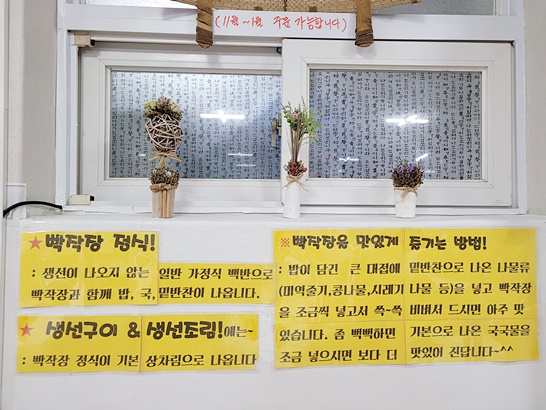 (11월~1월 주문 가능합니다)
★빡작장 정식!
: 생선이 나오지 않는 일반 가정식 백반으로
빡작장과 함께 밥, 국, 밑반찬이 나옵니다.
★ 생선구이 & 생선조림!에는~
: 빡작장 정식이 기본 상차림으로 나옵니다
※빡작장을 맛있게 즐기는 방법!
: 밥이 담긴 큰 대접에 밑반찬으로 나온 나물류
(미역줄기,콩나물,시래기 나물 등)을 넣고 빡작장
을 조금씩 넣고서 쓱~쓱 비벼서 드시면 아주 맛
있습니다. 좀 뻑뻑하면 기본으로 나온 국국물을
조금 넣으시면 보다 더 맛있어 진답니다~^^